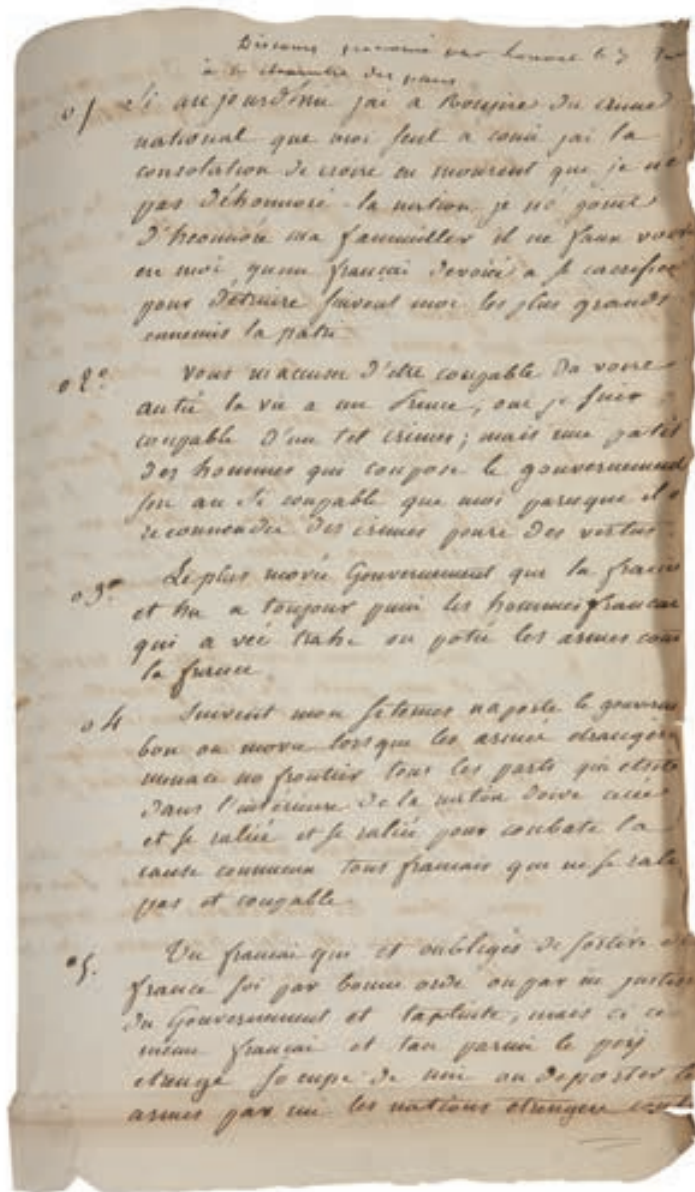 Discours prononcé par Louvel le 5
à la chambre des pairs
o 1 Si aujourd'hui jai a Rougire du crime
national que moi seul a comi jai la
consolation de croire en mourent que je né
pas déhonnoré la nation je né point
d'heonnoré ma fammiller il ne faux voire
en moi qu'un françai devoiué a se sacrifice
pour détruire suivent moi les plus grands
ennemis la patri
o 2° vous m'accuser d'etre coupable da voire
autié la vie a un Prence, oui je suis
coupable d'un tel crimes; mais une patie
des hommes qui coupose le gouvernement
son au si coupable que moi parceque il
reconnondée des cremes poure des vertus.
o 3° Le plus movée Gouvernement que la france
et hu a toujour puni les hommes francai
qui a veé trahi ou potée les armes cont
la france
o 4 Suivent mon se temes naporte le gouvern
bon ou movée lorsque les armeé etrangère
menace no frontier tous les parts qui etsite
dans l'interieure de la nation doive cecée
et se raliée et se raliée pour conbate la
cause commeun tous francais que ne se ralie
pas et coupable.
o 5. Un francai qui et oubligés de sortire de
france soi par bonne orde ou par in justice
du Gouvernement et , mais ci ce
meme françai et tan parmi le peij
etrangé socupe de uni ou deporter le
armes par mi les nations etrangere